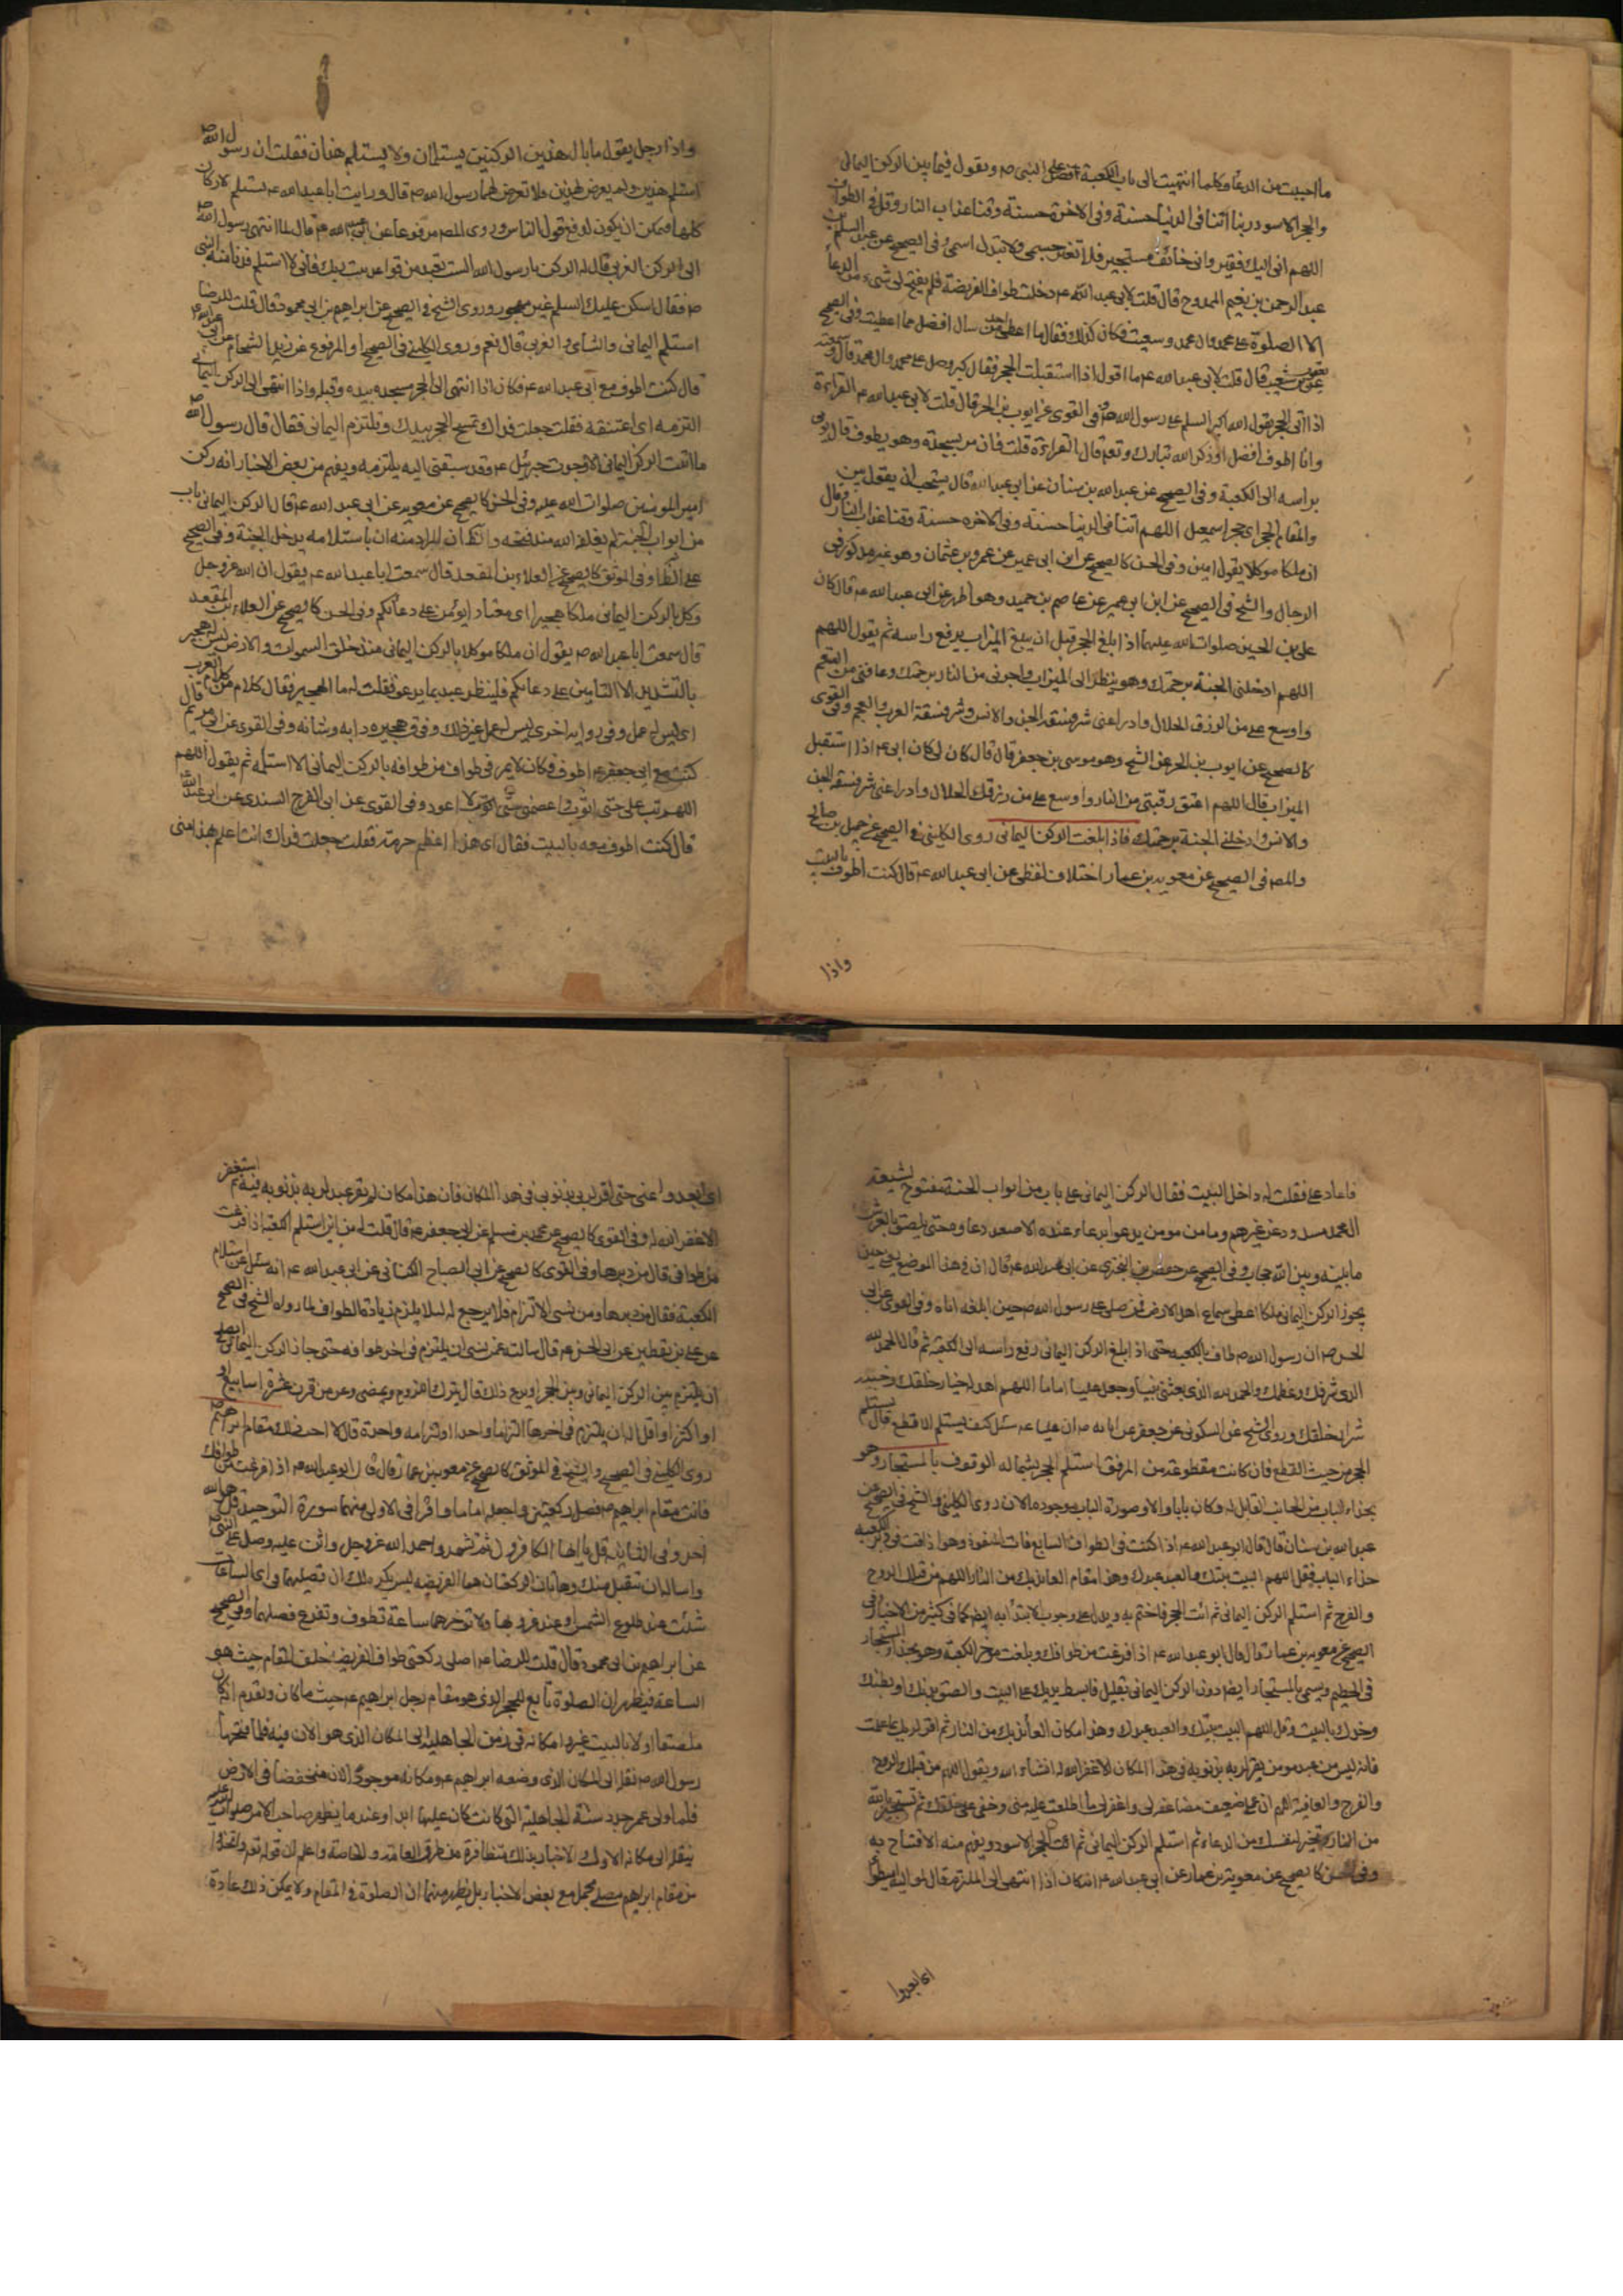 ما احببت من الدعا وكلما انتهيت الى باب الكعبة فصل على النبى ص وتقول فيما بين الركن اليمانى
والحجر الاسود ربنا اتنا فى الدنيا حسنة وفى الاخرة حسنة وقنا عذاب النار وقل فى الطواف
اللهم انى اليك فقير وانى خائف مستجير فلا تغير جسمى ولا تبدل اسمى وفى الصحيح عن عبد السلم بن
عبد الرحمن بن نعيم قال قلت لابى عبد الله ع دخلت طواف الفريضة فلم يفتح لى شىء من الدعا
الا الصلوة على محمد وال محمد وسعيت فكان كذلك فقال ما اعطى احد من سال افضل مما اعطيت وفى الصحيح
عن يعقوب بن شعيب قال قلت لابى عبد الله ع ما اقول اذا استقبلت الحجر فقال كبر وصل على محمد وال محمد قال وسمعته
اذا اتى الحجر يقول الله اكبر السلم على رسول الله ص وفى القوى عن ايوب بن الحر قال قلت لابى عبد الله ع القراءة
وانا اطوف افضل او ذكر الله تبارك وتعالى قال القراءة قلت فان مر بسجدة وهو يطوف قال يومى
براسه الى الكعبة وفى الصحيح عن عبد الله بن سنان عن ابى عبد الله قال يستحب ان يقول بين
والمقام الحجر اى حجر اسمعيل اللهم اتنا فى الدنيا حسنة وفى الاخره حسنة وقنا عذاب النار وقال
ان ملكا موكلا يقول امين وفى الحسن كالصحيح عن ابن ابى عمير عن عمرو بن عثمان وهو غير مذكور فى
الرجال والشيخ فى الصحيح عن ابن ابى عمير عن عاصم بن حميد وهو اظهر عن ابى عبد الله ع قال كان
على بن الحسين صلوات الله عليهما اذا بلغ الحجر قبل ان يبلغ الميزاب يرفع راسه ثم يقول اللهم
اللهم ادخلنى الجنة برحمتك وهو ينظر الى الميزاب واجرنى من النار برحمتك وعافنى من السقم
واوسع على من الرزق الحلال وادرا عنى شر فسقة الجن والانس وشر فسقة العرب والعجم وفى القوى
كالصحيح عن ايوب بن الحر عن الشيخ وهو موسى بن جعفر قال قال كان ابى ع اذا استقبل
الميزاب قال اللهم اعتق رقبتى من النار واوسع على من رزقك الحلال وادرا عنى شر فسقة الجن
والانس وادخلنى الجنة برحمتك فاذا بلغت الركن اليمانى روى الكلينى فى الصحيح عن جميل بن صالح
والمص فى الصحيح عن معوية بن عمار اختلاف لفظى عن ابى عبد الله ع قال كنت اطوف بالبيت
واذا
واذا رجل يقول ما بال هذين الركنين يستلمان ولا يستلم هذان فقلت ان رسول الله ص
استلم هذين ولم يعرض لهذين فلا تعرض لهما رسول الله ص قال ورايت ابا عبد الله ع يستلم الاركان
كلها فيمكن ان يكون لدفع قول الناس وروى المص مرفوعا عن ابى عبد الله ع قال لما انتهى رسول الله ص
الى الركن الغربى قال له الركن يا رسول الله الست بعيد من قواعد بيت ربك فمالى لا استلم فدنا منه النبى
ص فقال اسكن عليك السلم غير مهجور وروى الشيخ فى الصحيح عن ابراهيم بن ابى محمود قال قلت للرضا
استلم اليمانى والشامى والغربى قال نعم وروى الكلينى فى الصحيح او المرفوع عن زيد الشحام عن ابى عبد الله ع
قال كنت اطوف مع ابى عبد الله ع فكان اذا انتهى الى الحجر مسحه بيده وقبله واذا انتهى الى الركن اليمانى
التزمه اى اعتنقه فقلت جعلت فداك تمسح الحجر بيدك وتلتزم اليمانى فقال قال رسول الله ص
ما اتيت الركن اليمانى الا وجدت جبرئيل ع وقد سبقنى اليه يلتزمه ويفهم من بعض الاخبار انه ركن
امير المومنين صلوات الله عليه وفى الحسن كالصحيح عن معوية عن ابى عبد الله ع قال الركن اليمانى باب
من ابواب الجنة لم يغلقه الله منذ فتحه والظ ان المراد منه ان باستلامه يدخل الجنة وفى الصحيح
على الظاهر وفى الموثق كالصحيح عن العلاء بن المقعد قال سمعت ابا عبد الله ع يقول ان الله عز وجل
وكل بالركن اليمانى ملكا هجيرا اى معتادا يؤمن على دعائكم وفى الحسن كالصحيح عن العلاء بن المقعد
قال سمعت ابا عبد الله ص يقول ان ملكا موكلا بالركن اليمانى منذ خلق السموات والارض ليس له هجير
بالتشديد الا التامين على دعائكم فلينظر عبد بما يدعو فقلت له ما الهجير فقال كلام من كلام العرب
اى ليس له عمل وفى رواية اخرى ليس له عمل غير ذلك وفى ق هجيره دابه وشانه وفى القوى عن ابى مريم قال
كنت مع ابى جعفر ع اطوف فكان لا يمر فى طواف من طوافه بالركن اليمانى الا استلمه ثم يقول اللهم
اللهم تب على حتى اتوب واعصمنى حتى لا اعود وفى القوى عن ابى الفرج السندى عن ابى عبد الله
قال كنت اطوف معه بالبيت فقال اى هذا اعظم حرمة فقلت جعلت فداك انت اعلم بهذا منى
فاعاد على فقلت له داخل البيت فقال الركن اليمانى على باب من ابواب الجنة مفتوح لشيعة
ال محمد مسدود عن غيرهم وما من مومن يدعو بدعاء عنده الا صعد دعاوه حتى يلصق بالعرش
ما بينه وبين الله حجاب وفى الصحيح عن حفص بن البخترى عن ابى عبد الله ع قال ان فى هذا الموضع يعنى حين
يجوز الركن اليمانى ملكا اعطى سماع اهل الارض فمن صلى على رسول الله ص حين يبلغه ابلغه اياه وفى القوى عن ابى
الحسن ص ان رسول الله ص طاف بالكعبه حتى اذا بلغ الركن اليمانى رفع راسه الى الكعبة ثم قال الحمد لله
الذى شرفك وعظمك والحمد لله الذى بعثنى نبيا وجعل عليا اماما اللهم اهد له خيار خلقك وجنبه
شرار خلقك وروى الشيخ عن السكونى عن جعفر عن ابائه ص ان عليا ع سئل كيف يستلم الاقطع قال يستلم
الحجر من حيث القطع فان كانت مقطوعة من المرفق استلم الحجر بشماله الوقوف بالمستجار وهو
بحذاء الباب من الجانب المقابل له وكان بابا والان صورة الباب موجوده الان روى الكلينى والشيخ فى الصحيح عن
عبد الله بن سنان قال قال ابو عبد الله ع اذا كنت فى الطواف السابع فات المتعوذ وهو اذا قمت فى دبر الكعبه
حذاء الباب فقل اللهم البيت بيتك والعبد عبدك وهذا مقام العائذ بك من النار اللهم من قبلك الروح
والفرج ثم استلم الركن اليمانى ثم ائت الحجر فاختم به ويدل على وجوب الابتداء به ايضا كما فى كثير من الاخبار وفى
الصحيح عن معوية بن عمار قال قال ابو عبد الله ع اذا فرغت من طوافك وبلغت موخر الكعبة وهو بحذاء المستجار
فى الحطيم ويسمى بالمستجار ايضا دون الركن اليمانى بقليل فابسط يديك على البيت والصق بدنك او بطنك
وخدك بالبيت وقل اللهم البيت بيتك والعبد عبدك وهذا مكان العائذ بك من النار ثم اقر لربك بما عملت
فانه ليس من عبد مومن يقر لربه بذنوبه فى هذا المكان الا غفر الله له انشاء الله ويقول اللهم من قبلك الروح
والفرج والعافية اللهم ان عملى ضعيف فضاعفه لى واغفر لى ما اطلعت عليه منى وخفى على خلقك ثم تستجير بالله
من النار وتخير لنفسك من الدعاء ثم استلم الركن اليمانى ثم ائت الحجر الاسود ويفهم منه الافتتاح به
وفى الحسن كالصحيح عن معوية بن عمار عن ابى عبد الله ع انه كان اذا انتهى الى الملتزم قال لمواليه اميطوا
اى ابعدوا
اى ابعدوا عنى حتى اقر لربى بذنوبى فى هذا المكان فان هذا مكان لم يقر عبد لربه بذنوبه فيه ثم استغفر
الا غفر الله له وفى القوى كالصحيح عن محمد بن مسلم عن ابى جعفر ع قال قلت له من اين استلم الكعبة اذا فرغت
من طوافى قال من دبرها وفى القوى كالصحيح عن ابى الصباح الكنانى عن ابى عبد الله ع انه سئل عن استلام
الكعبة فقال من دبرها ومن نسى الالتزام فلا يرجع له لئلا يلزم زيادة الطواف لما رواه الشيخ فى الصحيح
عن على بن يقطين عن ابى الحسن ع قال سالته عمن نسى ان يلتزم فى اخر طوافه حتى جاز الركن اليمانى ايصلح
ان يلتزم بين الركن اليمانى وبين الحجر او يدع ذلك قال يترك الملتزم ويمضى وعن من قرن عشرة اسابيع او
او اكثر او اقل اله ان يلتزم فى اخرها التزاما واحدا او التزامه واحدة قال لا احب ذلك مقام ابراهيم
روى الكلينى فى الصحيح والشيخ فى الموثق كالصحيح عن معوية بن عمار قال قال ابو عبد الله ص اذا فرغت من طوافك
فائت مقام ابراهيم ص فصل ركعتين واجعله اماما واقرا فى الاولى منهما سورة التوحيد قل هو الله
احد وفى الثانيه قل يا ايها الكافرون ثم تشهد واحمد الله عز وجل واثن عليه وصل على النبى
واساله ان يتقبل منك وهاتان الركعتان هما الفريضه ليس يكره لك ان تصليهما فى اى الساعات
شئت عند طلوع الشمس وعند غروبها ولا توخرهما ساعة تطوف وتفرغ فصلهما وفى الصحيح
عن ابراهيم بن ابى محمود قال قلت للرضا ع اصلى ركعتى طواف الفريضه خلف المقام حيث هى
الساعة فيظهر ان الصلوة تابع للحجر الذى هو مقام رجل ابراهيم ع حيث ما كان وتقدم انه كان
ملصقا اولا بالبيت غيروا مكانه فى زمن الجاهلية الى المكان الذى هو الان فيه فلما فتحها
رسول الله ص نقله الى المكان الذى وضعه ابراهيم ع ومكانه موجود الان منخفضا فى الارض
فلما ولى عمر جدد سنة الجاهلية التى كانت كان عليها ابدا وعندما يظهر صاحب الامر صلوات الله عليه
ينقله الى مكانه الاول والاخبار بذلك متظافرة من طرق العامة والخاصة واعلم ان قوله تعم واتخذوا
من مقام ابراهيم مصلى مجمل مع بعض الاخبار بل يظهر منهما ان الصلوة فى المقام ولا يمكن ذلك عادة